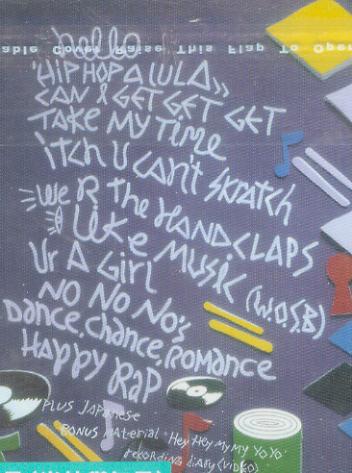 able Cover Raise This Flap To Open
hello
"HIP HOP A LULA"
CAN I GET GET GET
TAKE MY TIME
ITCH U CAN'T SKRATCH
WE R THE HANDCLAPS
I LIKE MUSIC (W.O.S.B)
UR A GIRL
NO NO NO'S
DANCE, CHANCE, ROMANCE
HAPPY RAP
PLUS JAPANESE
BONUS MATERIAL: "HEY HEY MY MY YO YO"
RECORDING DIARY (VIDEO)